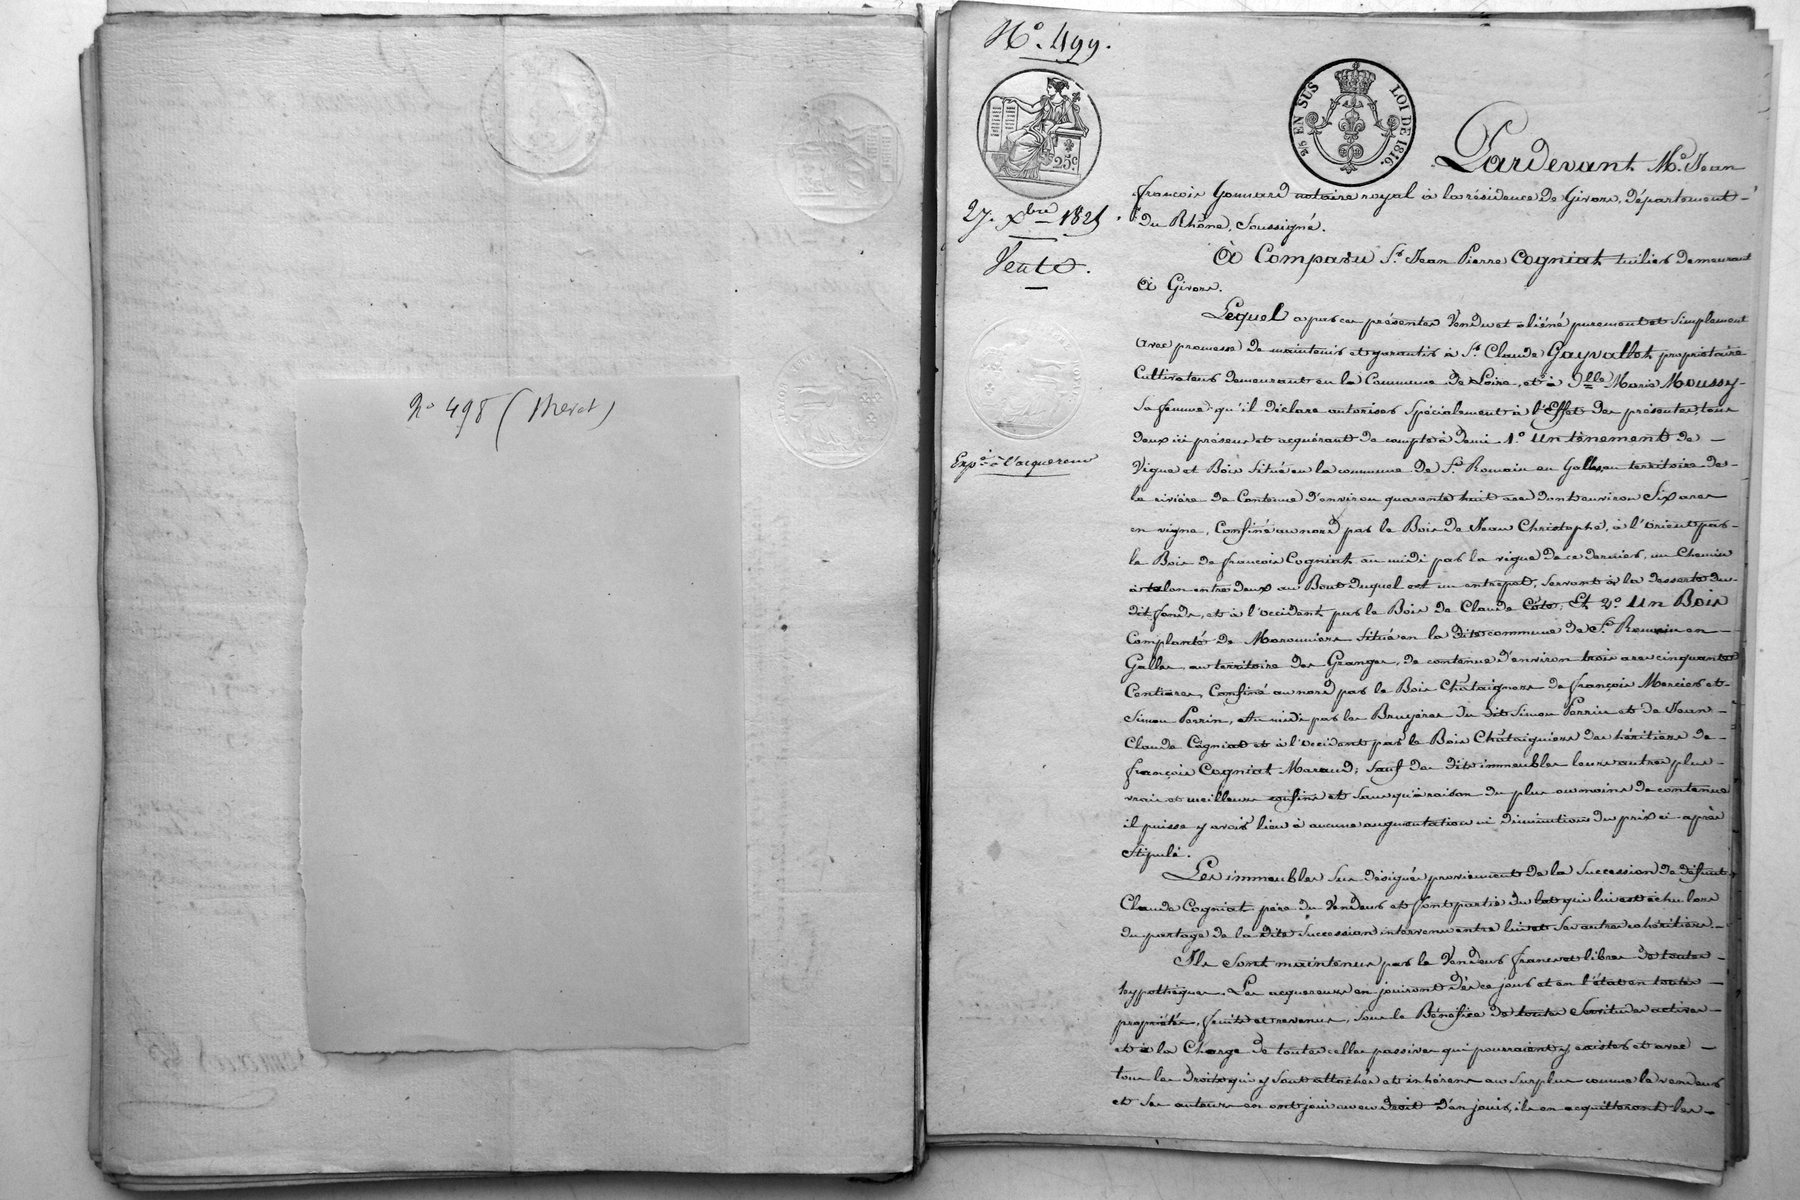 n° 498 (
N°. 499.
25c
25 EN SUS LOI DE 1816.
27. Xbre 1825.
Vente.
Expé. à l'acquereur
Pardevant Me. Jean
françois Gonnard notaire royal à la résidence de Givors, département
du Rhône, Soussigné.
A Comparu Sr. Jean Pierre Cogniat tuilier demeurant
à Givors.
Lequel a par ces présentes Vendu et aliéné purement et Simplement
avec promesse de maintenir et garantir à Sr. Claude Gayvallet, propriétaire
Cultivateur demeurant en la Commune de Loire, et à Dlle Marie Moussy
Sa femme qu'il déclare autoriser Spécialement à l'Effet des présentes, tous
deux ici présens et acquérant de compte à demi. 1°. Un tènement de
Vigne et Bois Situé en la commune de St. Romain en Galles, au territoire de
la rivière de Contenue d'environ quarante huit ares dont environ Six ares
en vigne, Confiné au nord par le Bois de Jean Christophe, à l'orient par
le Bois de françois Cogniat au midi par la vigne de ce dernier, un Chemin
à talon entre deux au Bout duquel est un entrepot, Servant à la desserte du
dit fonds, et à l'occident par le Bois de Claude Côte; Et 2°. Un Bois
Complanté de Maronniers Situé en la dite commune de St. Romain en
Galles, au territoire des Granges, de contenue d'environ trois ares cinquante
Centiares, Confiné au nord par le Bois Châtaigners de françois Mercier et
Simon Perrin, Au midi par les Bruyères du dit Simon Perrin et de Jean
Claude Cogniat et à l'occident par le Bois Châtaigniers des héritiers de
françois Cogniat Maraud; Sauf des dits immeubles leurs autres plus
vrais et meilleurs confins et Sans qu'à raison du plus ou moins de contenue
il puisse y avoir lieu à aucune augmentation ni diminution du prix ci-après
Stipulé.
Les immeubles Sus désignés proviennent de la Succession de défunt
Claude Cogniat père du Vendeur et font partie du lot qui lui est échu lors
du partage de la dite Succession intervenu entre lui et Ses autres cohéritiers.
Ils Sont maintenus par le Vendeur francs et libres de toutes
hypothèques. Les acquereurs en jouiront dès ce jour et en l'état en toutes
propriétés, fruits et revenus, Sous le Bénéfice de toutes Servitudes actives
et à la Charge de toutes celles passives qui pourraient y exister et avec
tous les Droits qui y Sont attachés et inhérens au Surplus comme le vendeur
et Ses auteurs en ont joui ou eu Droit d'en jouir, ils en acquitteront les